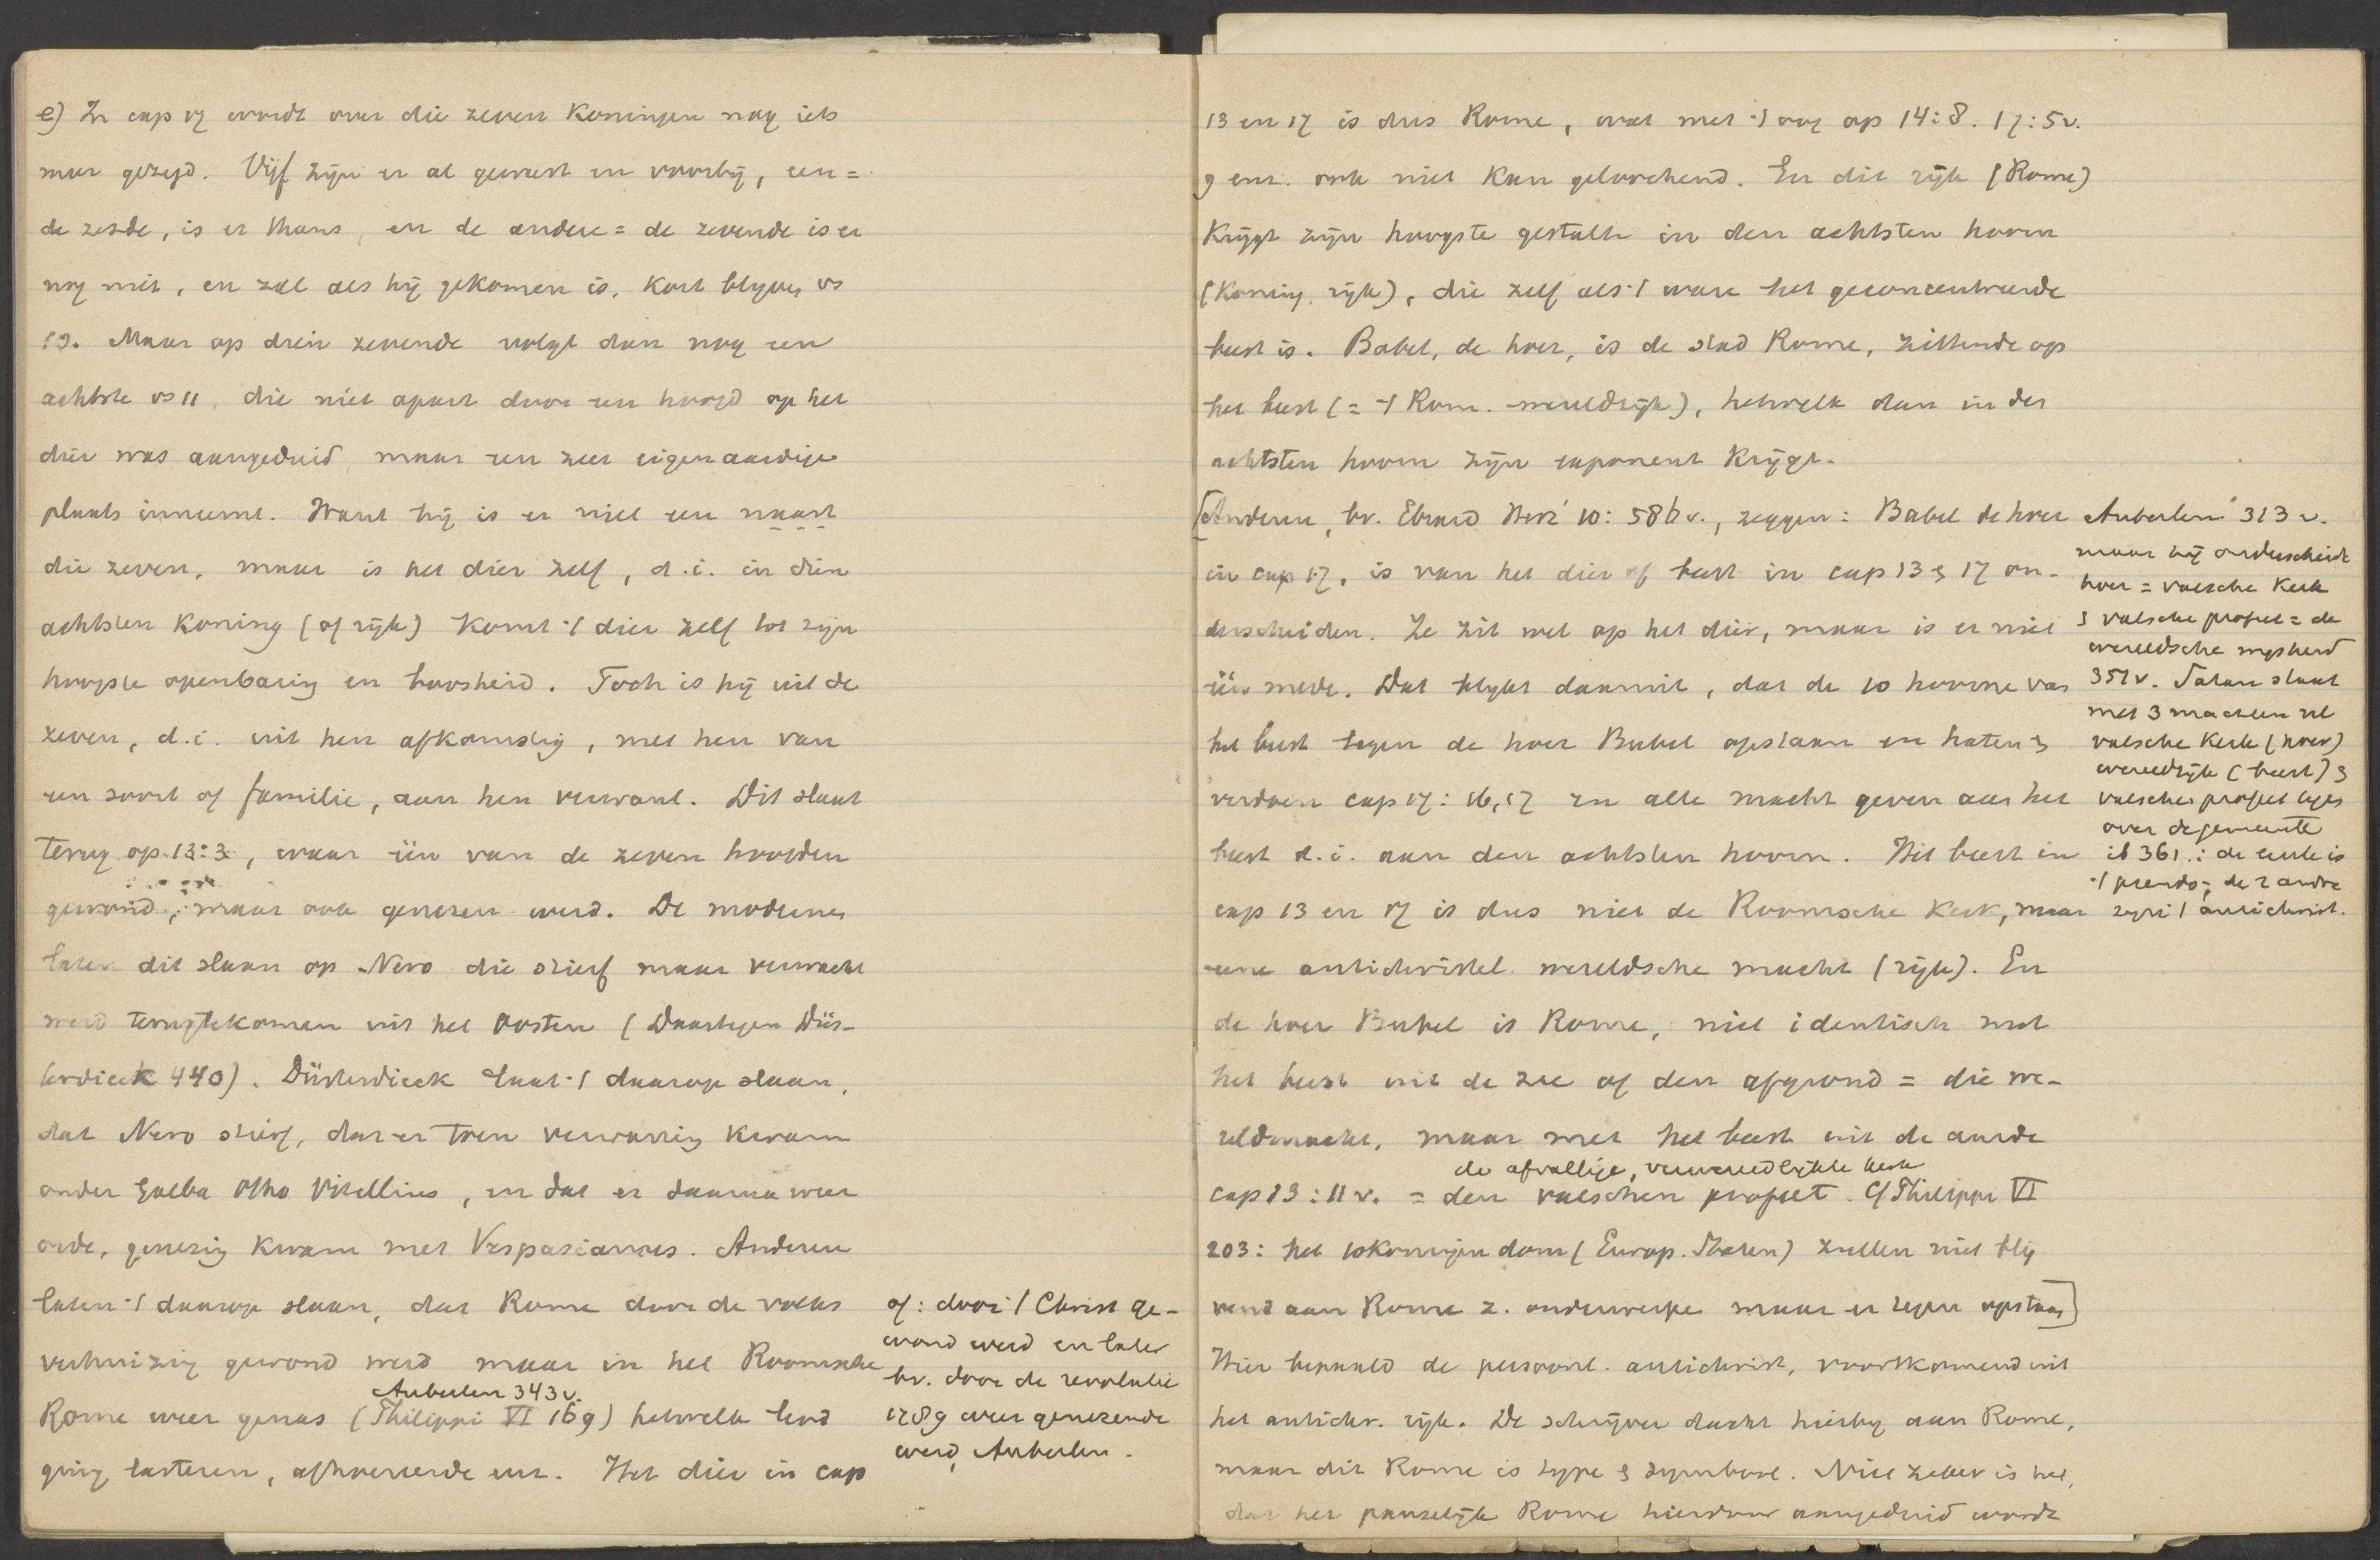 e) In cap 17 wordt over die zeven Koningen nog iets
meer gezegd. Vijf zijn er al geweest en voorbij, een =
de zesde, is er thans, en de andere = de zevende is er
nog niet, en zal als hij gekomen is, kort blijven vs
10. Maar op dien zevende volgt dan nog een
achtste vs 11, die niet apart door een hoofd op het
dier was aangeduid maar een zeer eigenaardige
plaats inneemt. Want hij is er niet een naast
die zeven, maar is het dier zelf, d.i. in dien
achtsten Koning (of rijk) komt 't dier zelf tot zijn
hoogste openbaring en boosheid. Toch is hij uit de
zeven, d.i. uit hen afkomstig, met hen van
een soort of familie, aan hen verwant. Dit slaat
terug op 13:3, waar één van de zeven hoofden
gewond, maar ook genezen werd. De modernen
laten dit slaan op Nero die stierf maar verwacht
werd terugtekomen uit het Oosten (Daartegen Düs-
terdieck 440). Düsterdieck laat 't daarop slaan,
dat Nero stierf, dat er toen verwarring kwam
onder Galba Otho Vitellius, en dat er daarna weer
orde, genezing kwam met Vespasianus. Anderen
laten 't daarop slaan, dat Rome door de volks
verhuizing gewond werd maar in het Roomsche
Auberlen 343v.
Rome weer genas (Philippi VI 169) hetwelk
ging lasteren, afhoereerde enz. Het dier in cap
of: door 't Christ. ge-
wond werd en later
bv. door de revolutie
1789 weer genezende
werd, Auberlen.
13 en 17 is dus Rome, wat met 't oog op 14:8. 17:5v.
9 enz. ook niet kan geloochend. En dit rijk (Rome)
Krijgt zijn hoogste gestalte in den achtsten hoorn
(Koning, rijk), die zelf als 't ware het geconcentreerde
beest is. Babel, de hoer, is de stad Rome, zittende op
het beest (= 't Rom. wereldrijk), hetwelk dan in den
achtsten hoorn zijn exponent krijgt.
[Anderen, bv. Ebrard Herz² 10:586v., zeggen: Babel de hoer
in cap 17, is van het dier of beest in cap 13 & 17 on-
derscheiden. Ze zit wel op het dier, maar is er niet
één mede. Dat blijkt daaruit, dat de 10 hoorne van
het beest tegen de hoer Babel opstaan en haten &
verdoen cap 17:16,17 en alle macht geven aan het
beest d.i. aan den achtsten hoorn. Dit beest in
cap 13 en 17 is dus niet de Roomsche Kerk, maar
eene antichristel. wereldsche macht (rijk). En
de hoer Babel is Rome, niet identisch met
het beest uit de zee of den afgrond = die we-
reldmacht, maar met het beest uit de aarde
de afvallige, verwereldlijkte kerk
cap 13:11v. = den valschen profeet. Cf Philippi VI
203: het 10 Koningendom (Europ. Staten) zullen niet blij
vend aan Rome z. onderwerpe maar er tegen opstaan]
Hier bepaald de persoonl. antichrist, voortkomend uit
het antichr. rijk. De schrijver dacht hierbij aan Rome,
maar dit Rome is type & symbool. Niet zeker is het,
dat het pauselijk Rome hierdoor aangeduid wordt
Auberlen 313v.
maar hij onderscheidt
hoer = valsche Kerk
& valsche profeet = de
wereldsche wijsheid
351v. Satan staat
met 3 machten nl
valsche Kerk (hoer)
wereldrijk (beest) &
valsche profeet tegen
over de gemeente
ib 361.: de eerste is
't pseudo-, de 2 andre
zijn 't antichrist.